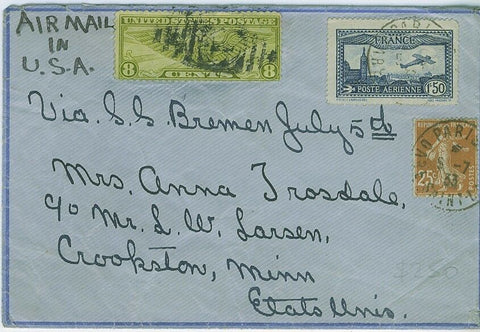 AIR MAIL
IN
U.S.A.
UNITED STATES POSTAGE
8 8
FRANCE
POSTE AERIENNE
1F50
PARIS
25c
POSTES
Via S.S. Bremen July 5th
Mrs. Anna Trosdale,
c/o Mr. L. W. Larsen,
Crookston, Minn
Etats Unis.